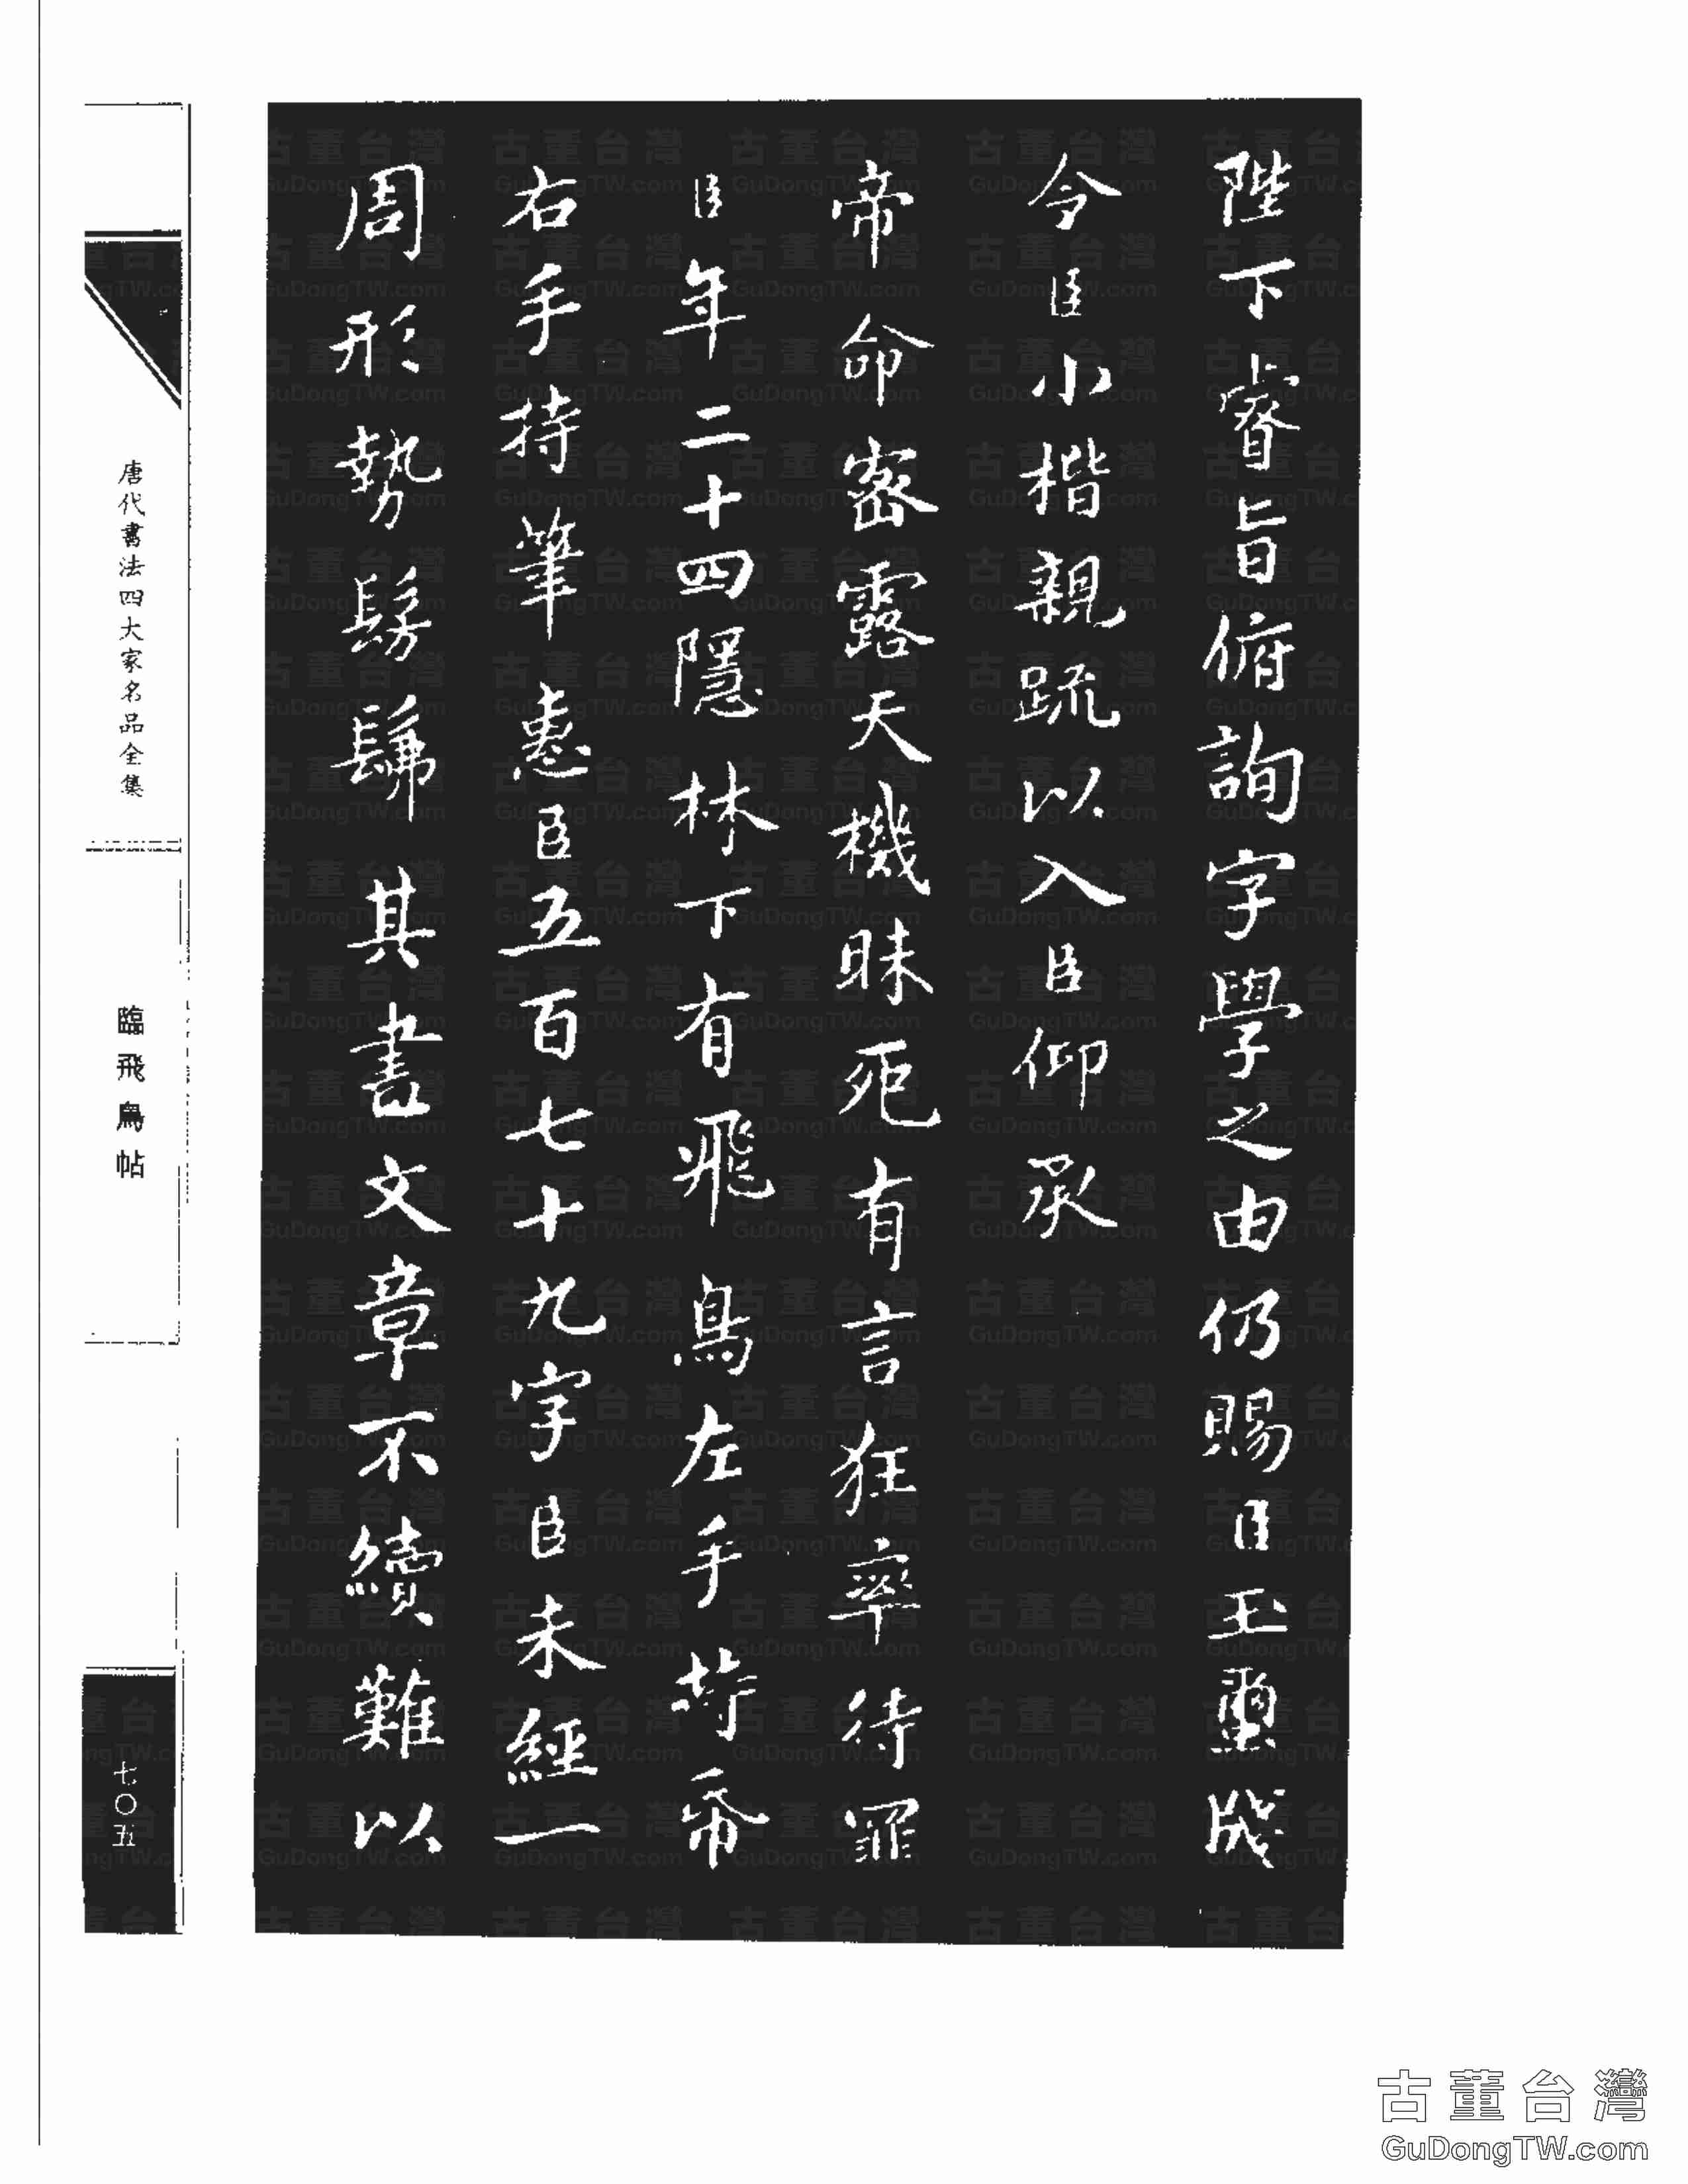 陛下睿旨俯詢字學之由仍賜臣玉璽牋
令臣小楷親疏以入臣仰承
帝命密露天機昧死有言狂率待罪
臣年二十四隱林下有飛鳥左手持帋
右手持筆惠臣五百七十九字臣未經一
周形勢髣髴其書文章不續難以
唐代書法四大家名品全集
臨飛鳥帖
七〇五
古董台灣
GuDongTW.com